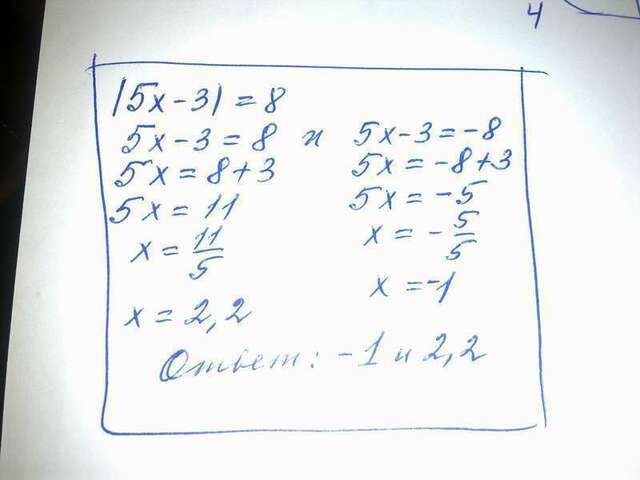 4
|5x-3|=8
5x-3=8 и 5x-3=-8
5x=8+3 5x=-8+3
5x=11 5x=-5
x=11/5 x=-5/5
x=2,2 x=-1
Ответ: -1 и 2,2